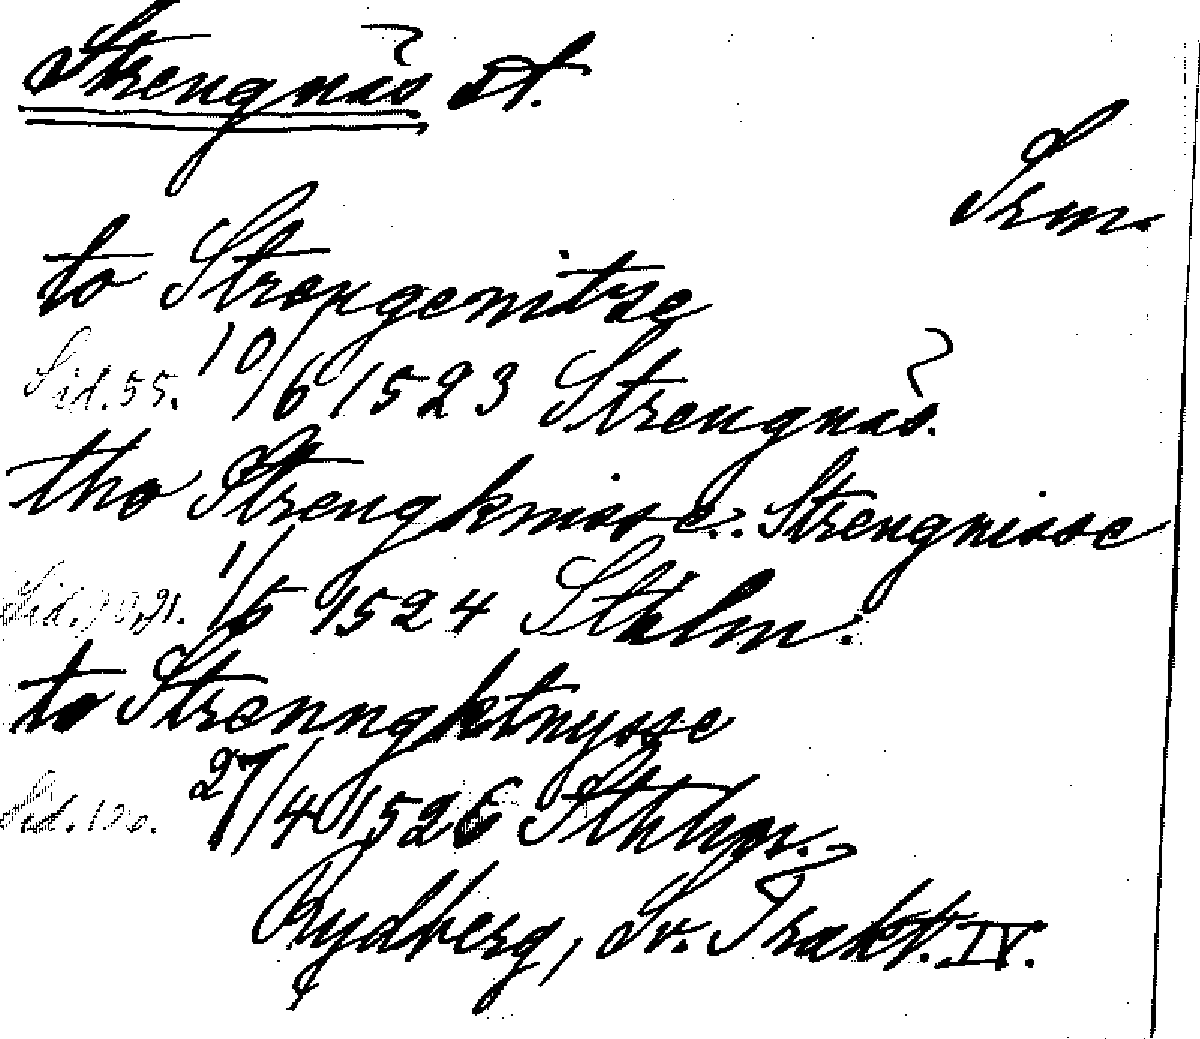 Strengnäs st.
Srm.
to Strengenitze
Sid. 55. 10/6 1523 Strengnäs.
tho Strengknisse. Strengnisse
Sid. 90, 91. 1/5 1524 Sthlm.
to Strenngktnysse
Sid. 100. 27/4 1526 Sthlm.
Rydberg, Sv. Trakt. IV.